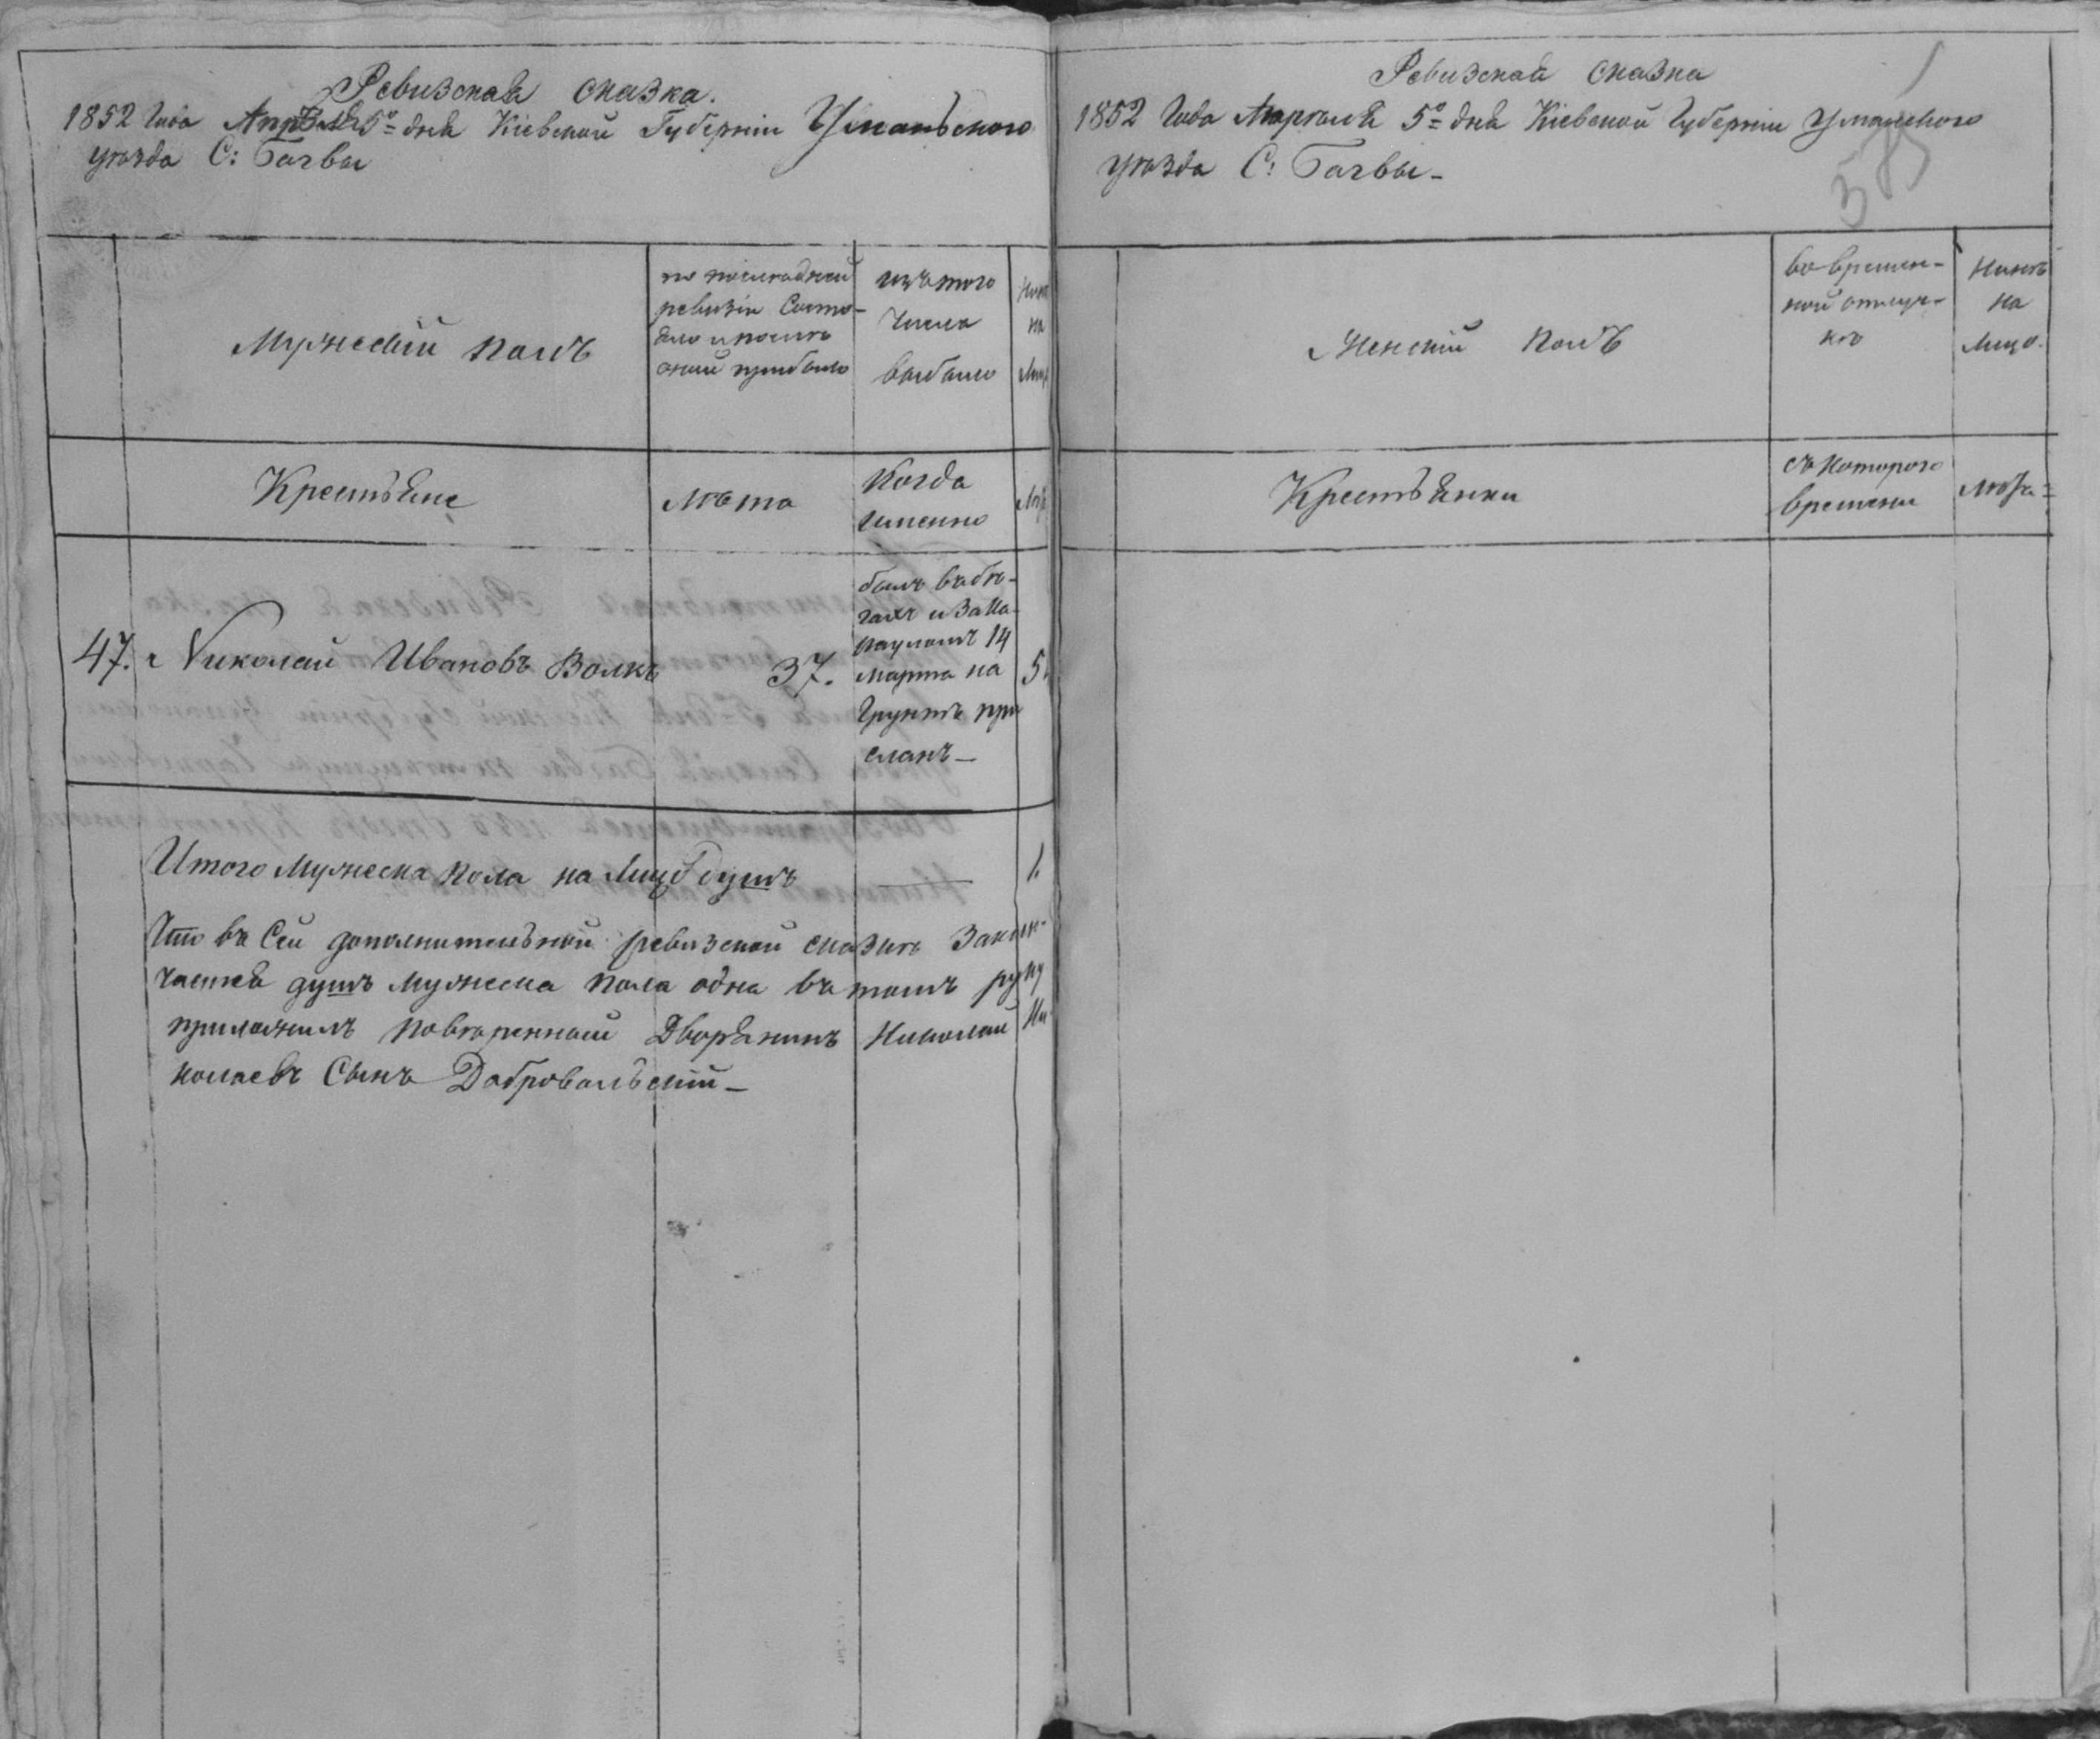 Ревизская сказка.
1852 Года Апреля 5го дня Кіевской Губерніи Уманьского
уѣзда С: Багвы
Мужескій полъ
по послѣдней
ревизіи Состо-
яло и послѣ
оной прибыло
изъ того
числа
выбыло
на
Крестьяне
Лѣта
Когда
именно
47. Николай Ивановъ Волкъ 37.
былъ въ бѣ-
гахъ и За Ка-
рауломъ 14
Марта на
Грунтъ при
сланъ—
Итого Мужеска пола на Лицо душъ 1.
Что въ Сей дополнительной ревизской сказкѣ Заклю-
чается душъ мужеска пола одна въ томъ руку
приложилъ повѣренный Дворянинъ Николай Ни-
колаевъ Сынъ Добровольскій—
Ревизская сказка
1852 Года Апрѣля 5го дня Кіевской Губерніи Уманского
уѣзда С: Багвы-
Женскій полъ
во времен-
ной отлуч-
кѣ
Нынѣ
на
лицо.
Крестьянки
съ Которого
времени
Лѣта